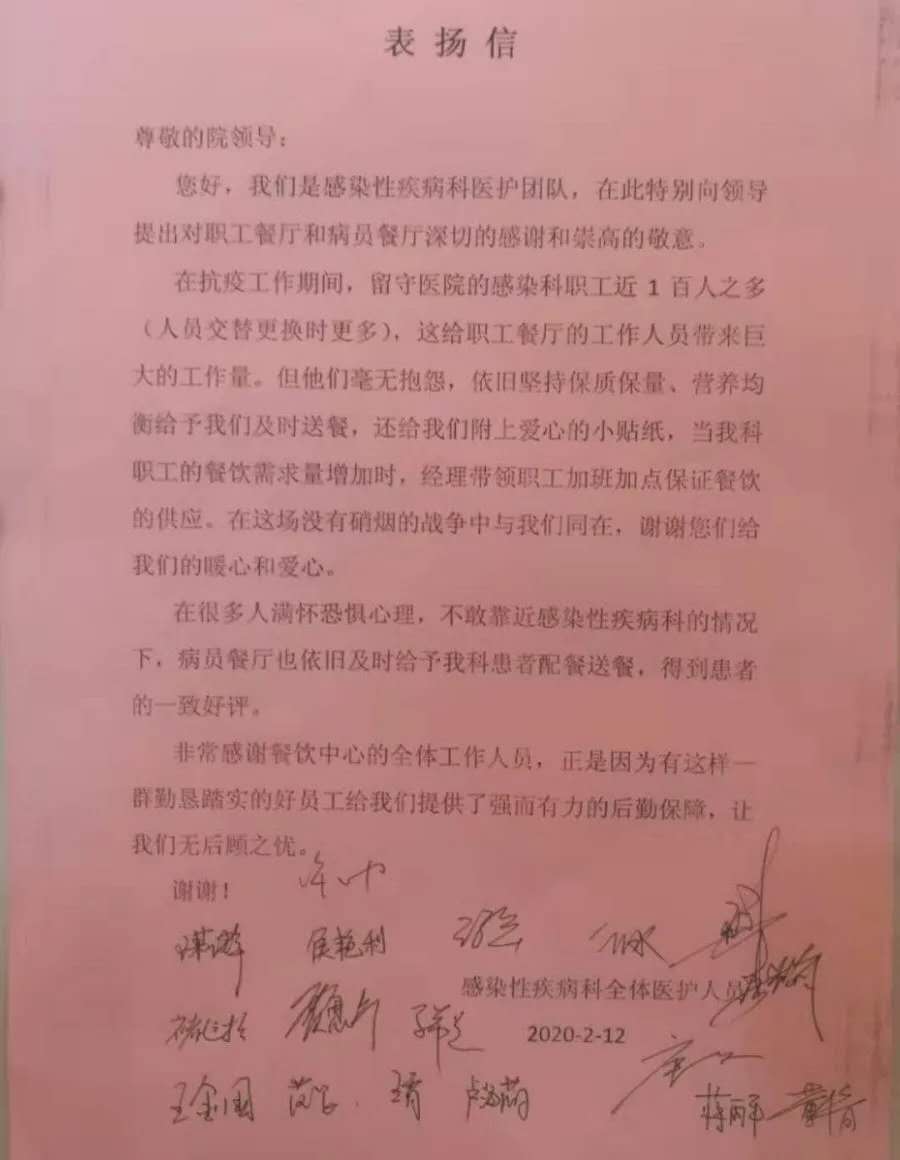 表扬信
尊敬的院领导：
您好，我们是感染性疾病科医护团队，在此特别向领导
提出对职工餐厅和病员餐厅深切的感谢和崇高的敬意。
在抗疫工作期间，留守医院的感染科职工近 1 百人之多
（人员交替更换时更多），这给职工餐厅的工作人员带来巨
大的工作量。但他们毫无抱怨，依旧坚持保质保量、营养均
衡给予我们及时送餐，还给我们附上爱心的小贴纸，当我科
职工的餐饮需求量增加时，经理带领职工加班加点保证餐饮
的供应。在这场没有硝烟的战争中与我们同在，谢谢您们给
我们的暖心和爱心。
在很多人满怀恐惧心理，不敢靠近感染性疾病科的情况
下，病员餐厅也依旧及时给予我科患者配餐送餐，得到患者
的一致好评。
非常感谢餐饮中心的全体工作人员，正是因为有这样一
群勤恳踏实的好员工给我们提供了强而有力的后勤保障，让
我们无后顾之忧。
谢谢！
侯艳利
感染性疾病科全体医护人员
2020-2-12
王金国